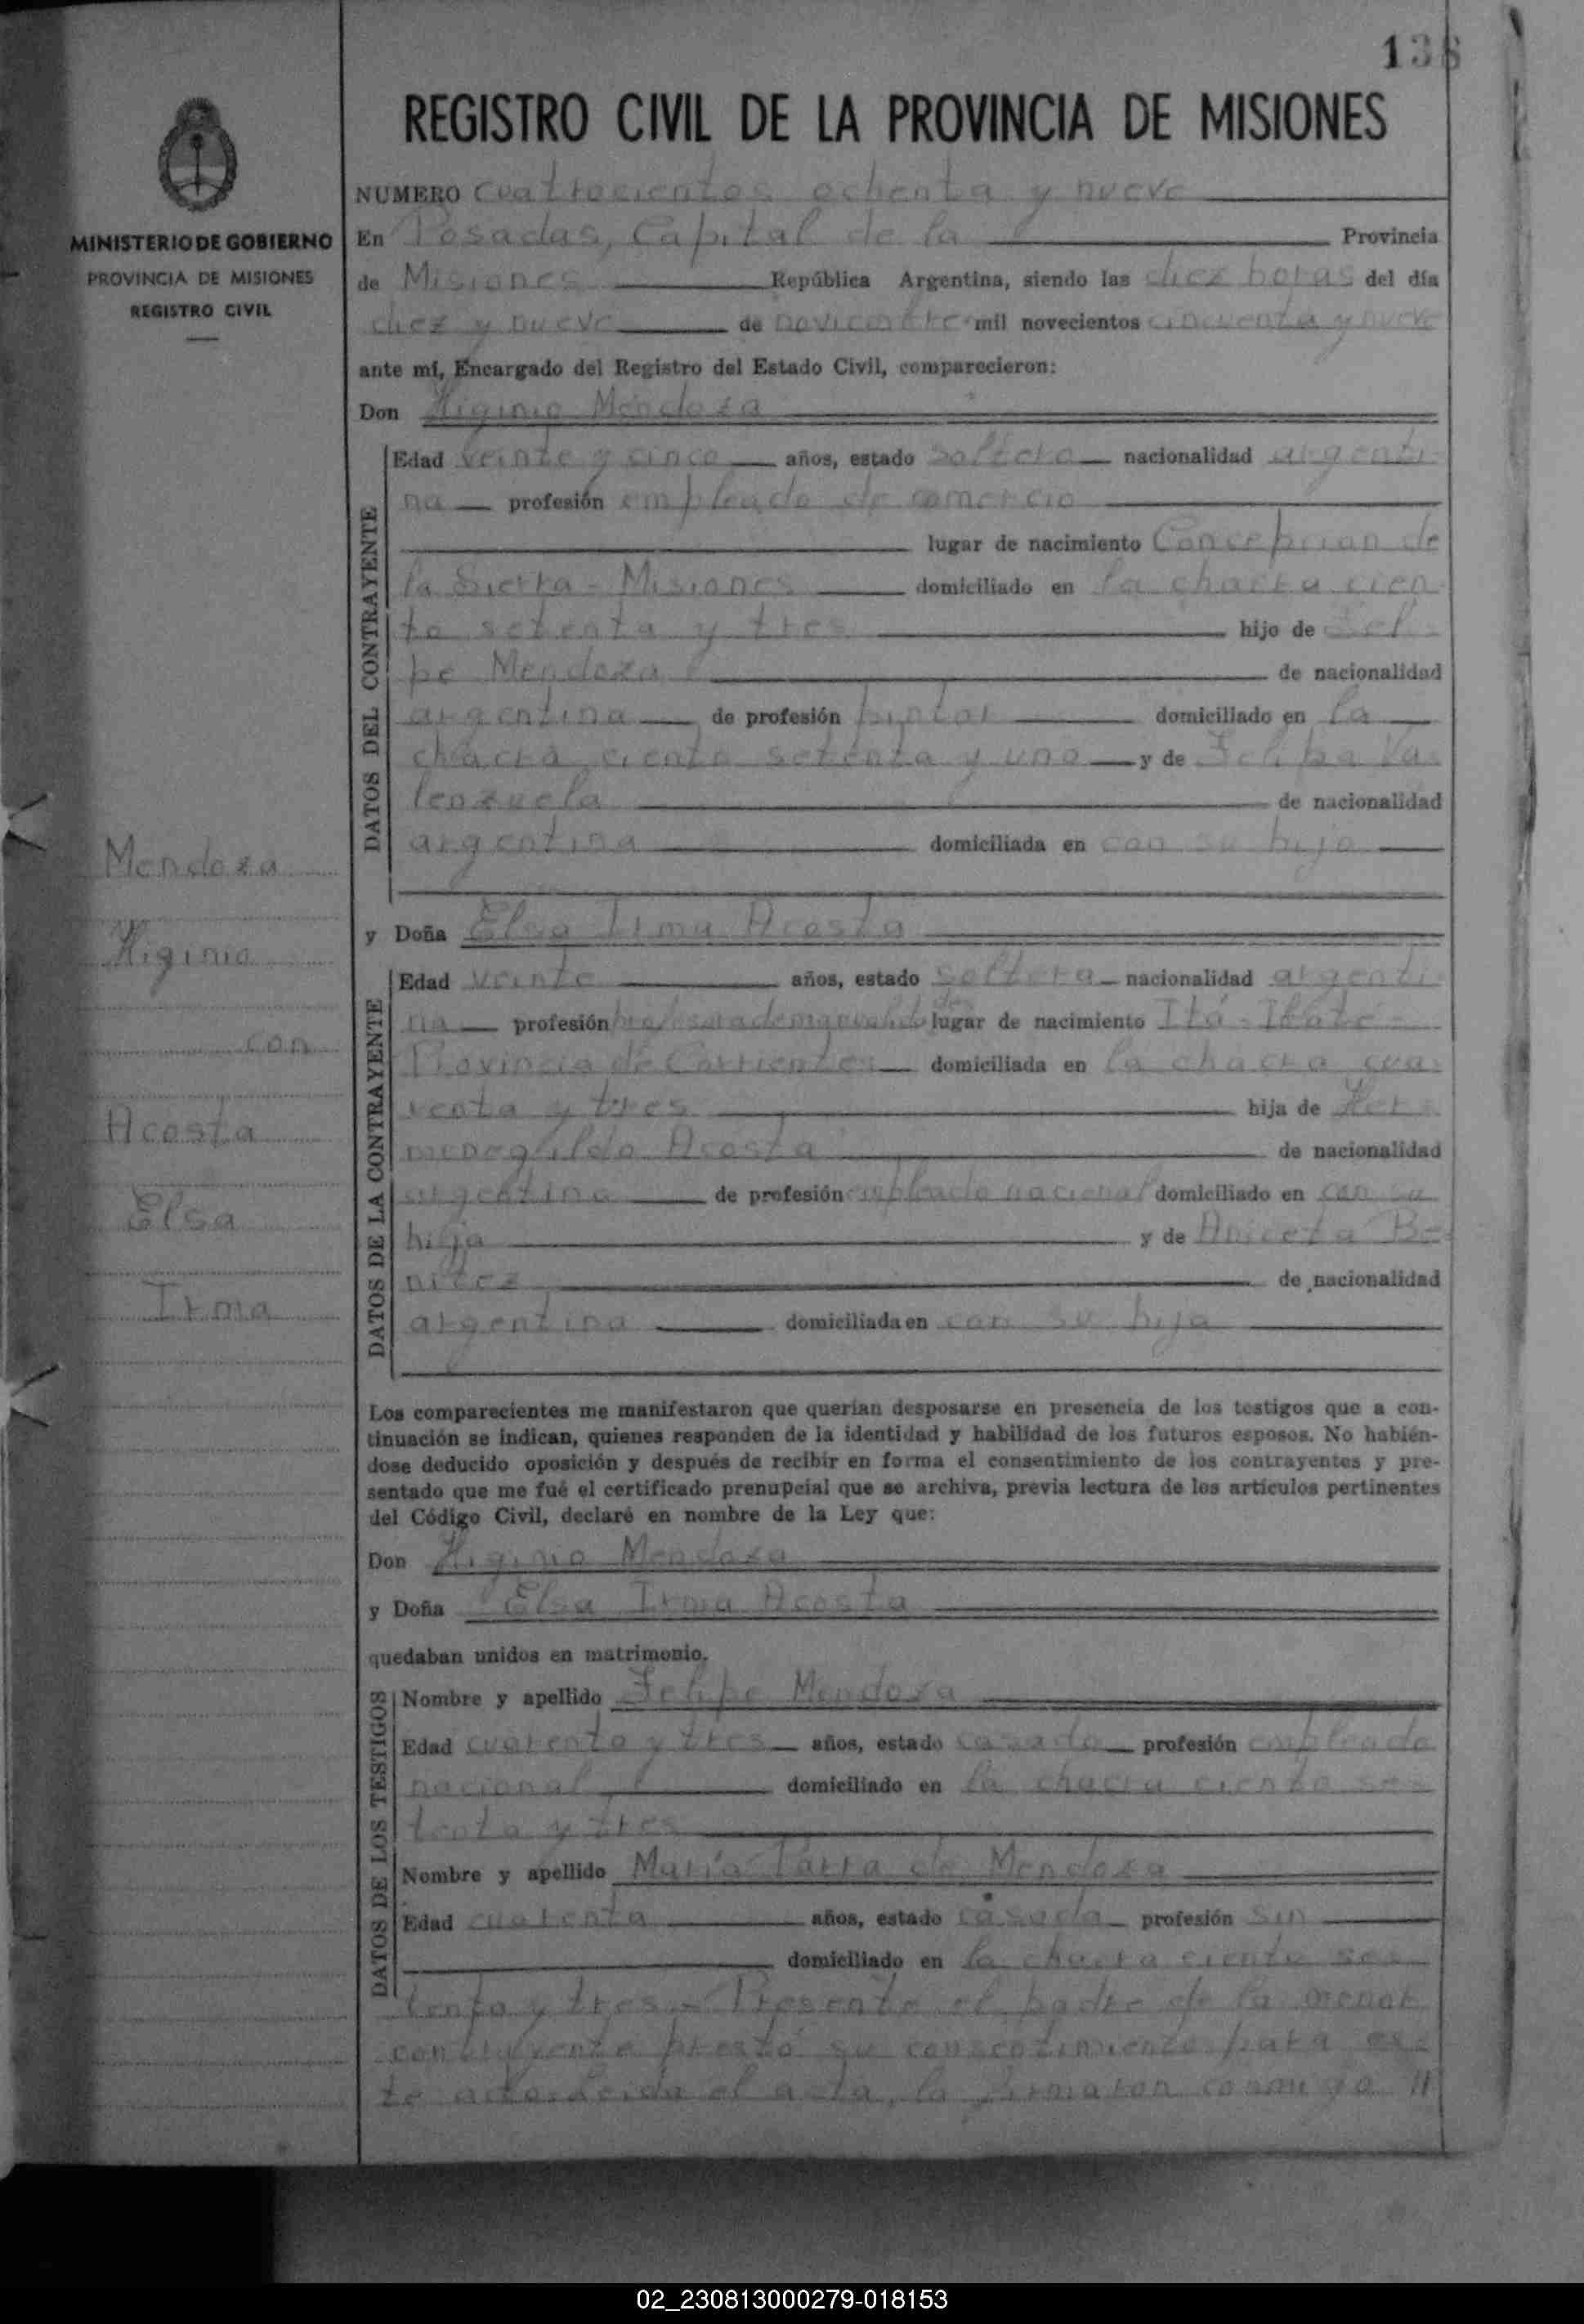 138
REGISTRO CIVIL DE LA PROVINCIA DE MISIONES
MINISTERIO DE GOBIERNO
PROVINCIA DE MISIONES
REGISTRO CIVIL
NUMERO cuatrocientos ochenta y nueve
En Posadas, Capital de la Provincia
de Misiones República Argentina, siendo las diez horas del día
diez y nueve de noviembre mil novecientos cincuenta y nueve
ante mí, Encargado del Registro del Estado Civil, comparecieron:
Don Higinio Mendoza
DATOS DEL CONTRAYENTE
Edad veinte y cinco años, estado soltero nacionalidad argenti-
na profesión empleado de comercio
lugar de nacimiento Concepcion de
la Sierra - Misiones domiciliado en la chacra cien-
to setenta y tres hijo de Feli-
pe Mendoza de nacionalidad
argentina de profesión pintor domiciliado en la
chacra ciento setenta y uno y de Felipa Va-
lenzuela de nacionalidad
argentina domiciliada en con su hijo
Mendoza
Higinio
con
Acosta
Elsa
Irma
y Doña Elsa Irma Acosta
DATOS DE LA CONTRAYENTE
Edad veinte años, estado soltera nacionalidad argenti-
na profesión profesora de lugar de nacimiento Itá-Ibaté-
Provincia de Corrientes domiciliada en la chacra cua-
renta y tres hija de Her-
menegildo Acosta de nacionalidad
argentina de profesión empleado nacional domiciliado en con su
hija y de Aniceta Be-
nitez de nacionalidad
argentina domiciliada en con su hija
Los comparecientes me manifestaron que querían desposarse en presencia de los testigos que a con-
tinuación se indican, quienes responden de la identidad y habilidad de los futuros esposos. No habién-
dose deducido oposición y después de recibir en forma el consentimiento de los contrayentes y pre-
sentado que me fué el certificado prenupcial que se archiva, previa lectura de los artículos pertinentes
del Código Civil, declaré en nombre de la Ley que:
Don Higinio Mendoza
y Doña Elsa Irma Acosta
quedaban unidos en matrimonio.
DATOS DE LOS TESTIGOS
Nombre y apellido Felipe Mendoza
Edad cuarenta y tres años, estado casado profesión empleado
nacional domiciliado en la chacra ciento se-
tenta y tres
Nombre y apellido María Parra de Mendoza
Edad cuarenta años, estado casada profesión sin
domiciliado en la chacra ciento se-
tenta y tres - Presente el padre de la menor
contrayente prestó su consentimiento para es-
te acto. Leida el acta, la firmaron conmigo //
02_230813000279-018153